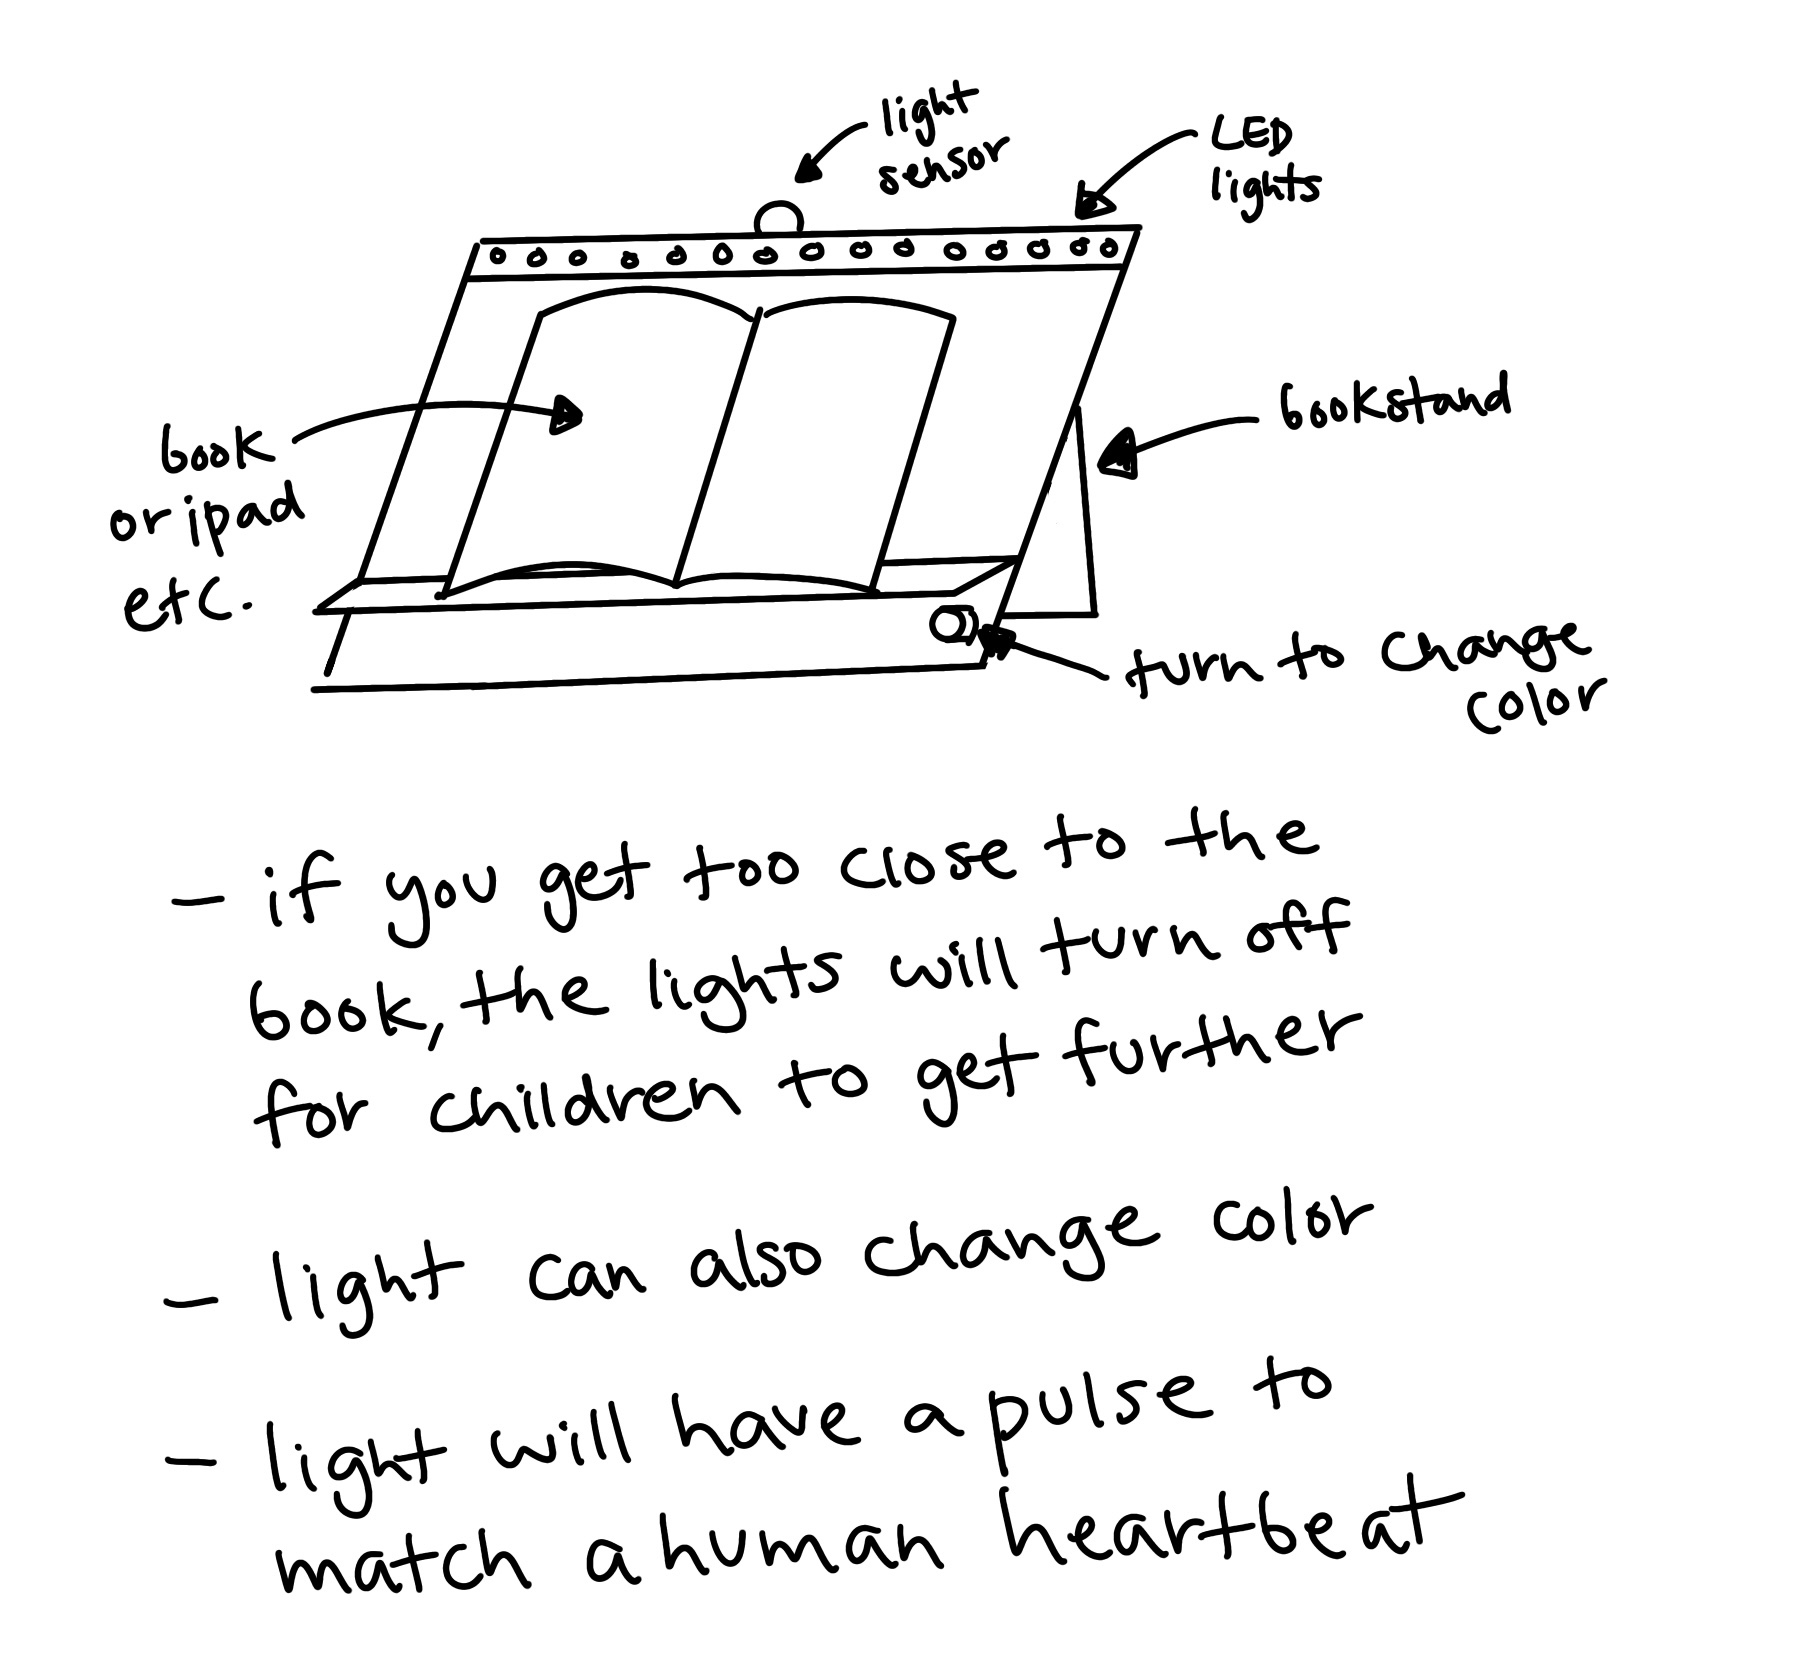 light
sensor
LED
lights
book
or ipad
etc.
bookstand
turn to change
color
- if you get too close to the
book, the lights will turn off
for children to get further
- light can also change color
- light will have a pulse to
match a human heartbeat